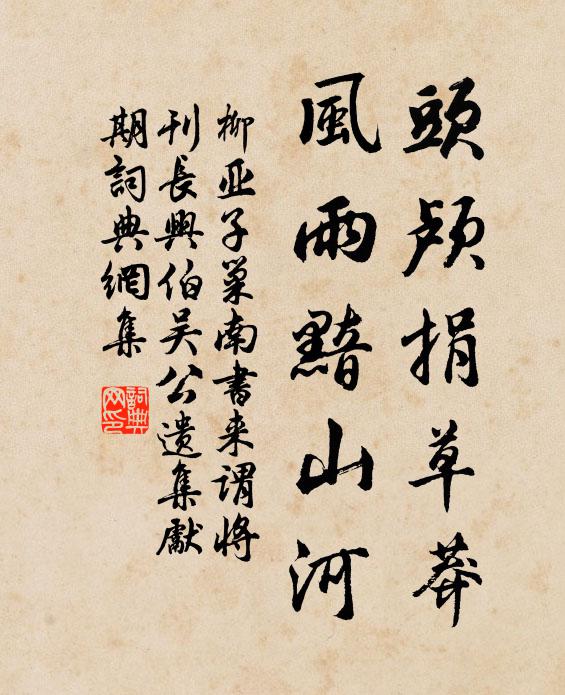 頭顱捐草莽
風雨黯山河
柳亚子巢南書来谓將
刊長興伯吴公遗集獻
期詞典網集
詞典网印